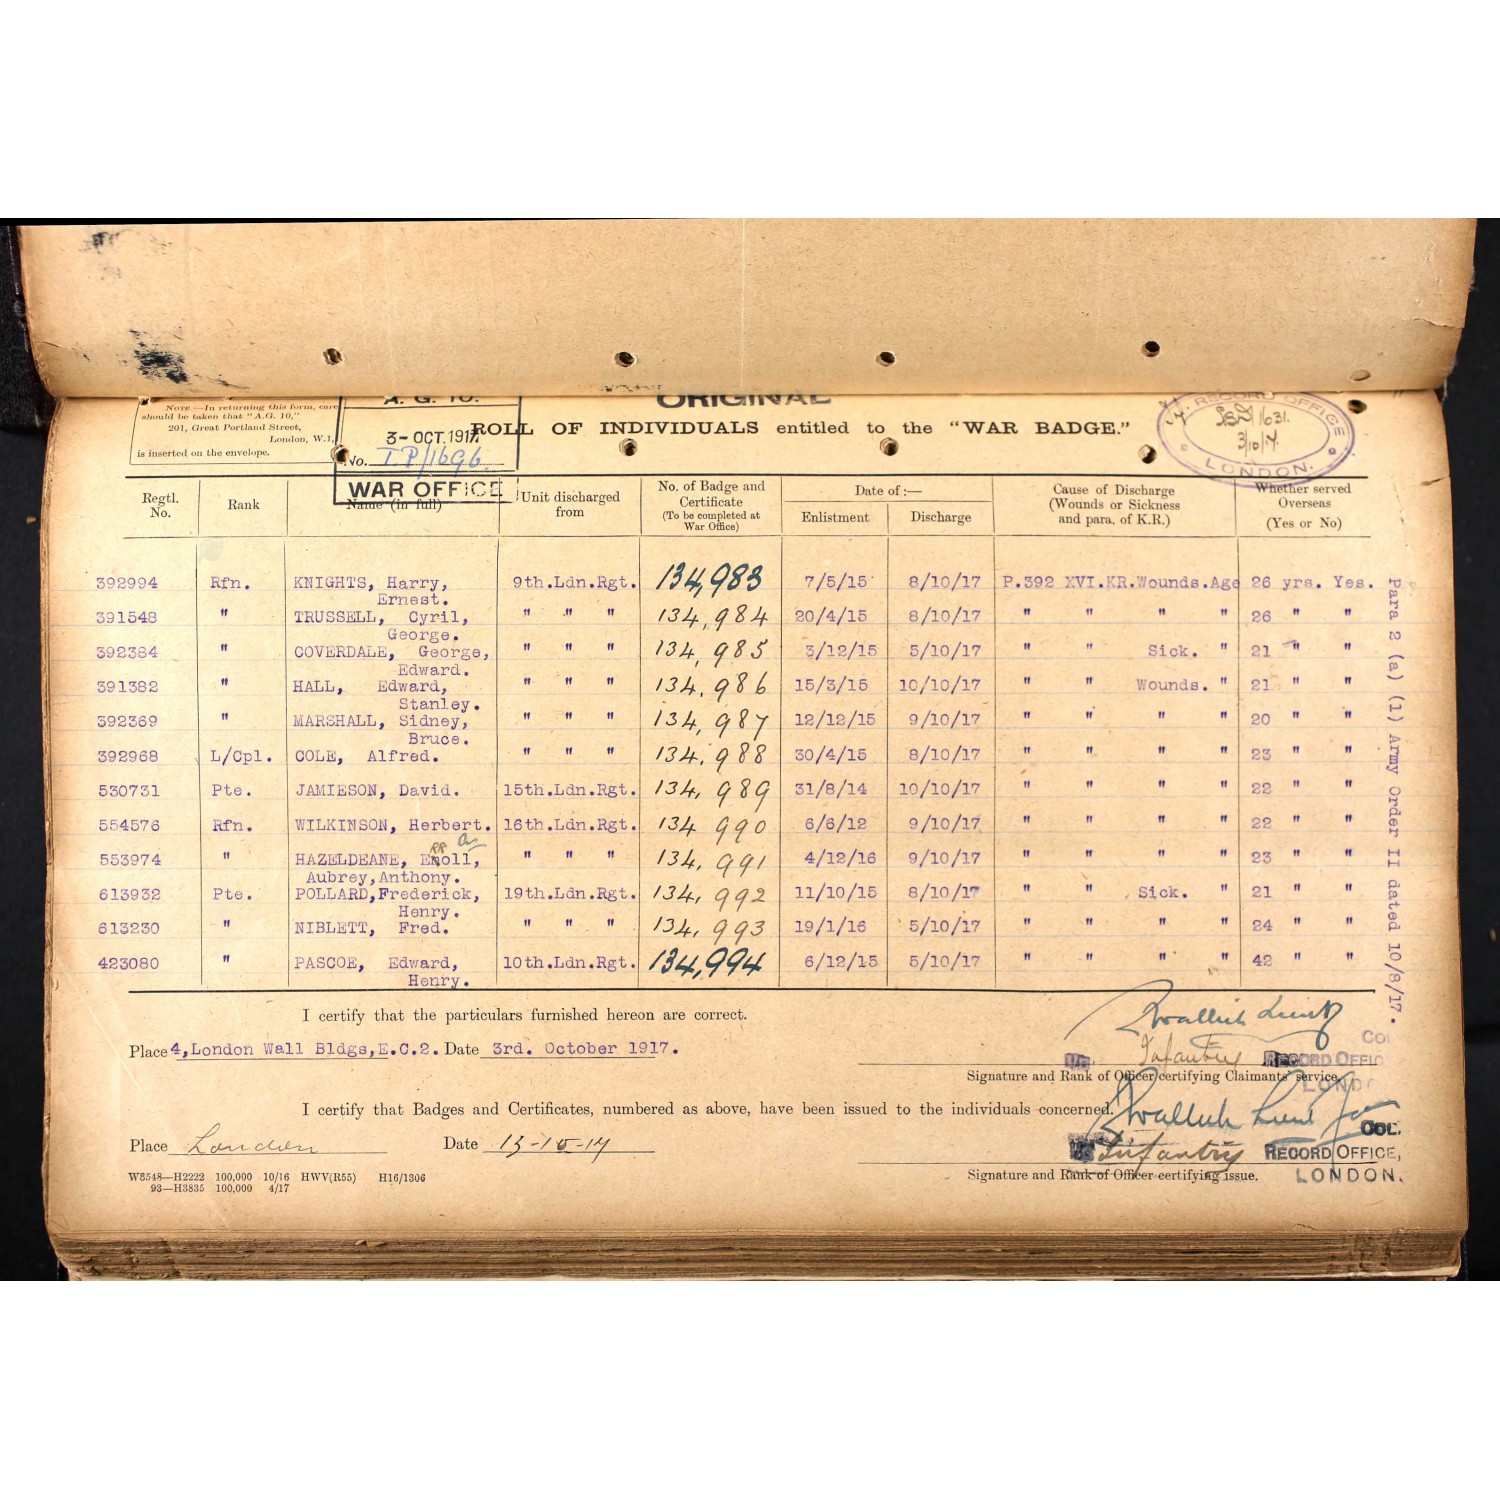 ORIGINAL
NOTE.—In returning this form, care
should be taken that "A.G. 10,"
201, Great Portland Street,
London, W.1,
is inserted on the envelope.
A. G. 10.
3-OCT.1917
No. I.P/1696
WAR OFFICE
RECORD OFFICE
1631.
3/10/17.
LONDON.
ROLL OF INDIVIDUALS entitled to the "WAR BADGE."
Regtl. No. Rank Name (in full) Unit discharged from No. of Badge and Certificate (To be completed at War Office) Date of :— Enlistment Discharge Cause of Discharge (Wounds or Sickness and para. of K.R.) Whether served Overseas (Yes or No)
392994 Rfn. KNIGHTS, Harry, 9th.Ldn.Rgt. 134,983 7/5/15 8/10/17 P.392 XVI.KR.Wounds.Age 26 yrs. Yes.
Ernest.
391548 " TRUSSELL, Cyril, " " " 134,984 20/4/15 8/10/17 " " " " 26 " "
George.
392384 " COVERDALE, George, " " " 134,985 3/12/15 5/10/17 " " Sick. " 21 " "
Edward.
391382 " HALL, Edward, " " " 134,986 15/3/15 10/10/17 " " Wounds. " 21 " "
Stanley.
392369 " MARSHALL, Sidney, " " " 134,987 12/12/15 9/10/17 " " " " 20 " "
Bruce.
392968 L/Cpl. COLE, Alfred. " " " 134,988 30/4/15 8/10/17 " " " " 23 " "
530731 Pte. JAMIESON, David. 15th.Ldn.Rgt. 134,989 31/8/14 10/10/17 " " " " 22 " "
554576 Rfn. WILKINSON, Herbert. 16th.Ldn.Rgt. 134,990 6/6/12 9/10/17 " " " " 22 " "
553974 " HAZELDEANE, " " " 134,991 4/12/16 9/10/17 " " " " 23 " "
Aubrey,Anthony.
613932 Pte. POLLARD,Frederick, 19th.Ldn.Rgt. 134,992 11/10/15 8/10/17 " " Sick. " 21 " "
Henry.
613230 " NIBLETT, Fred. " " " 134,993 19/1/16 5/10/17 " " " " 24 " "
423080 " PASCOE, Edward, 10th.Ldn.Rgt. 134,994 6/12/15 5/10/17 " " " " 42 " "
Henry.
Para 2 (a) (1) Army Order II dated 10/8/17.
I certify that the particulars furnished hereon are correct.
Place 4,London Wall Bldgs,E.C.2. Date 3rd. October 1917.
Infantry RECORD OFFIC
Signature and Rank of Officer certifying Claimants' service.
LOND
I certify that Badges and Certificates, numbered as above, have been issued to the individuals concerned.
COL.
Place London Date 13-10-17
Infantry RECORD OFFICE,
Signature and Rank of Officer certifying issue. LONDON.
W8548—H2222 100,000 10/16 HWV(R55) H16/1306
93—H3835 100,000 4/17